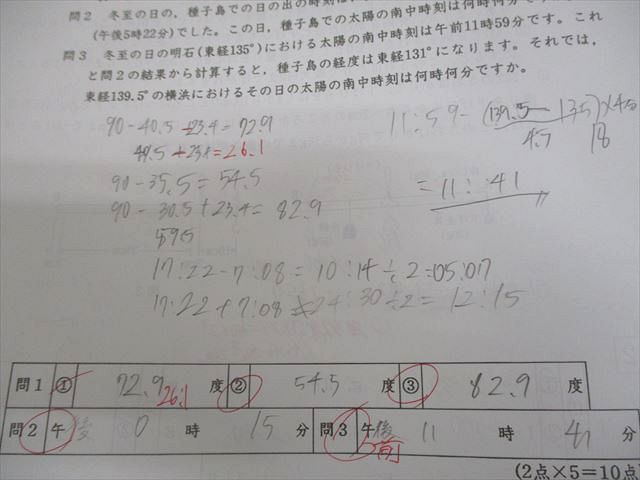 問2 冬至の日の，種子島での日の出の時刻は
（午後5時22分）でした。この日，種子島での太陽の南中時刻は何時何分です
問3 冬至の日の明石（東経135°）における太陽の南中時刻は午前11時59分です。これ
と問2の結果から計算すると，種子島の経度は東経131°になります。それでは，
東経139.5°の横浜におけるその日の太陽の南中時刻は何時何分ですか。
90-40.5+23.4=72.9
49.5+23.4=26.1
90-35.5=54.5
90-30.5+23.4=82.9
59.5
11:59-(139.5-135)×4分
4.5 18
=11:41
17:22-7:08=10:14÷2=05:07
17:22+7:08=24:30÷2=12:15
問1 ① 72.9 26.1 度 ② 54.5 度 ③ 82.9 度
問2 午後 0 時 15 分 問3 午後 前 11 時 41 分
(2点×5=10点